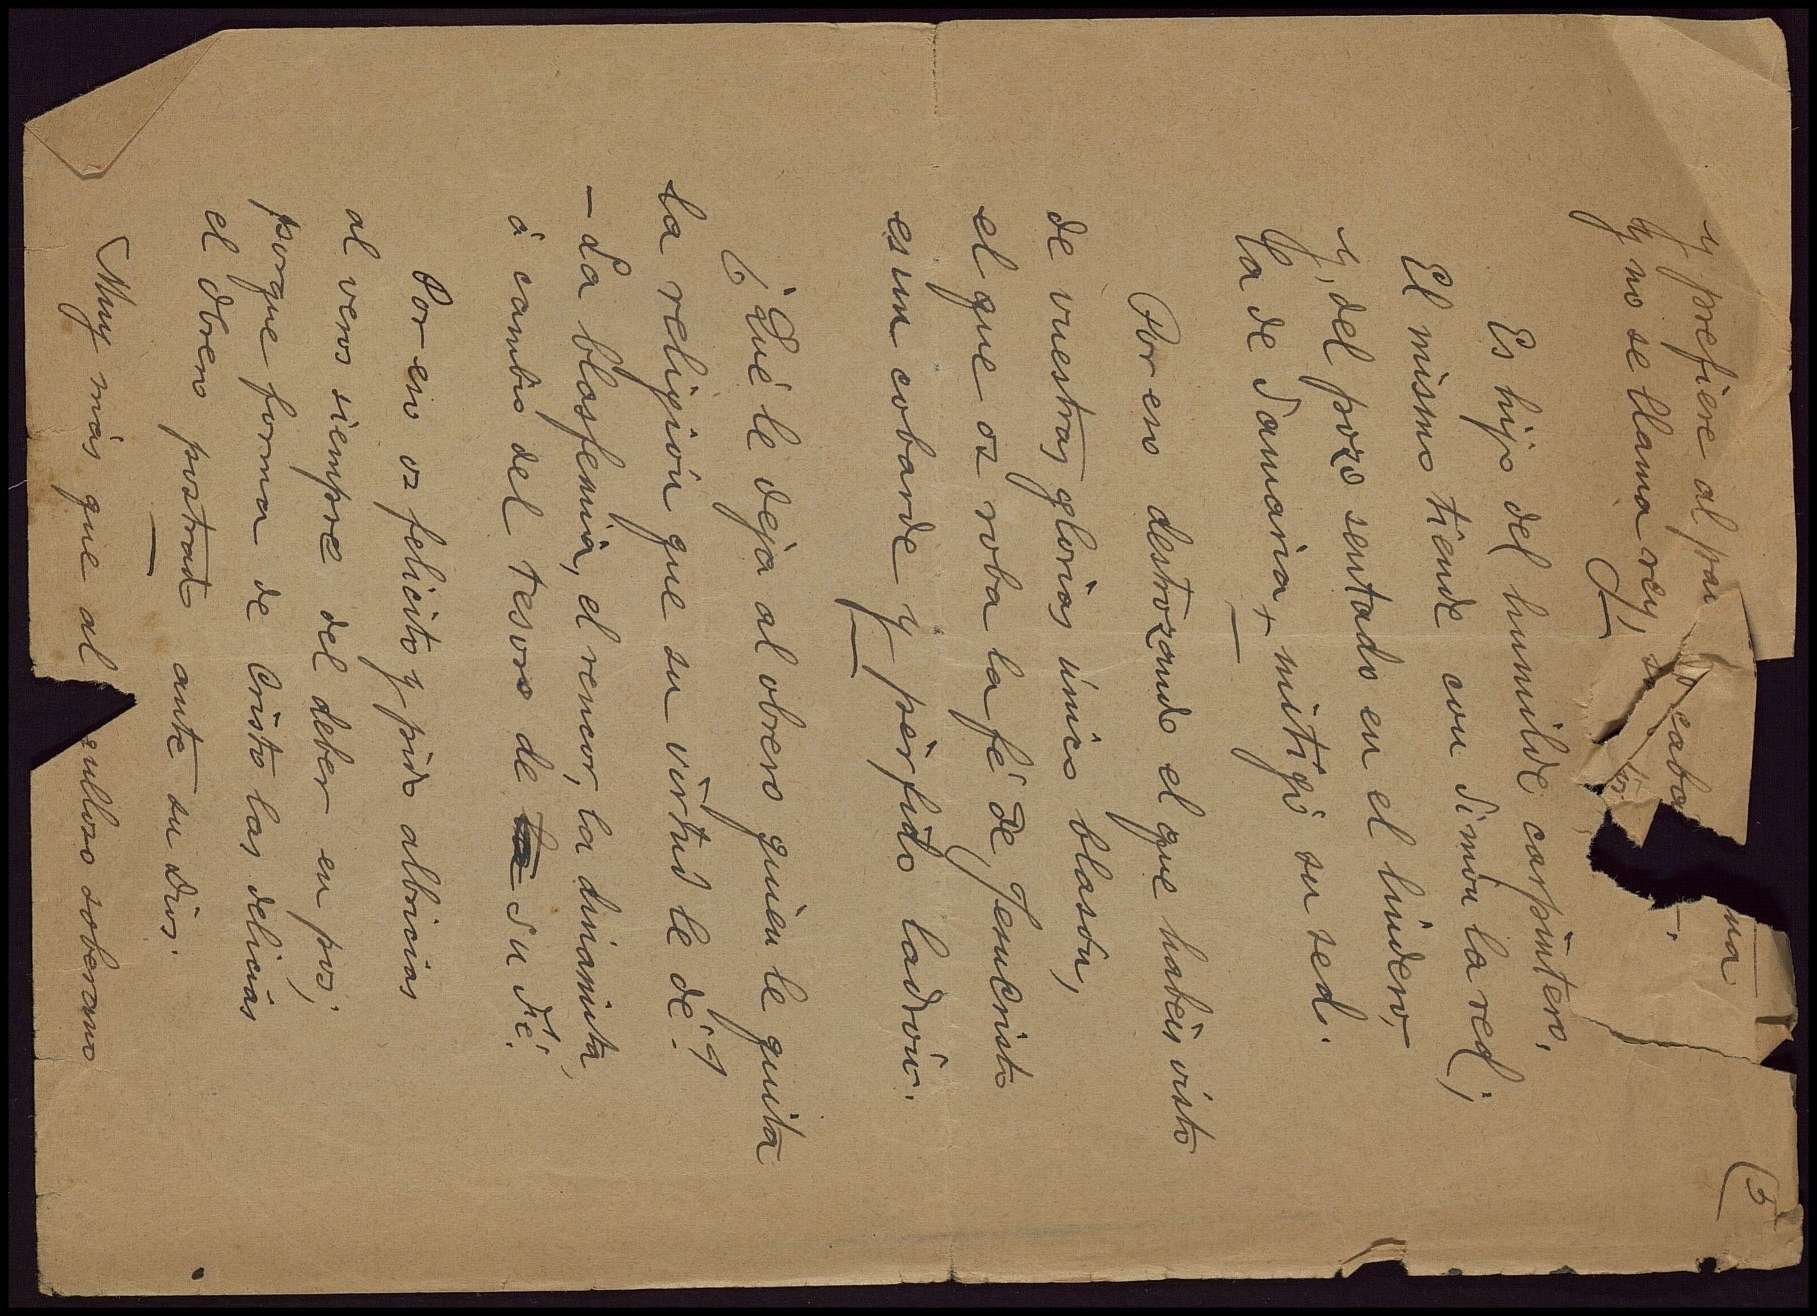 (3
y prefiere al pan
y no se llama rey, cabo
Es hijo del humilde carpintero.
El mismo tiende con Simón la red;
y, del pozo sentado en el lindero,
la de Samaria, mitigó su sed.
Por eso destrozando el que habéis visto
de vuestras glorias único blasón,
el que os roba la fé de Jesucristo
es un cobarde y pérfido ladrón.
¿Qué le deja al obrero quien le quita
la religión que su virtud le dé?
- La blasfemia, el rencor, la dinamita,
á cambio del tesoro de su Fé.
Por eso os felicito y pido albricias
al veros siempre del deber en pos;
porque forma de Cristo las delicias
el obrero postrado ante su Dios.
Muy más que al soberano